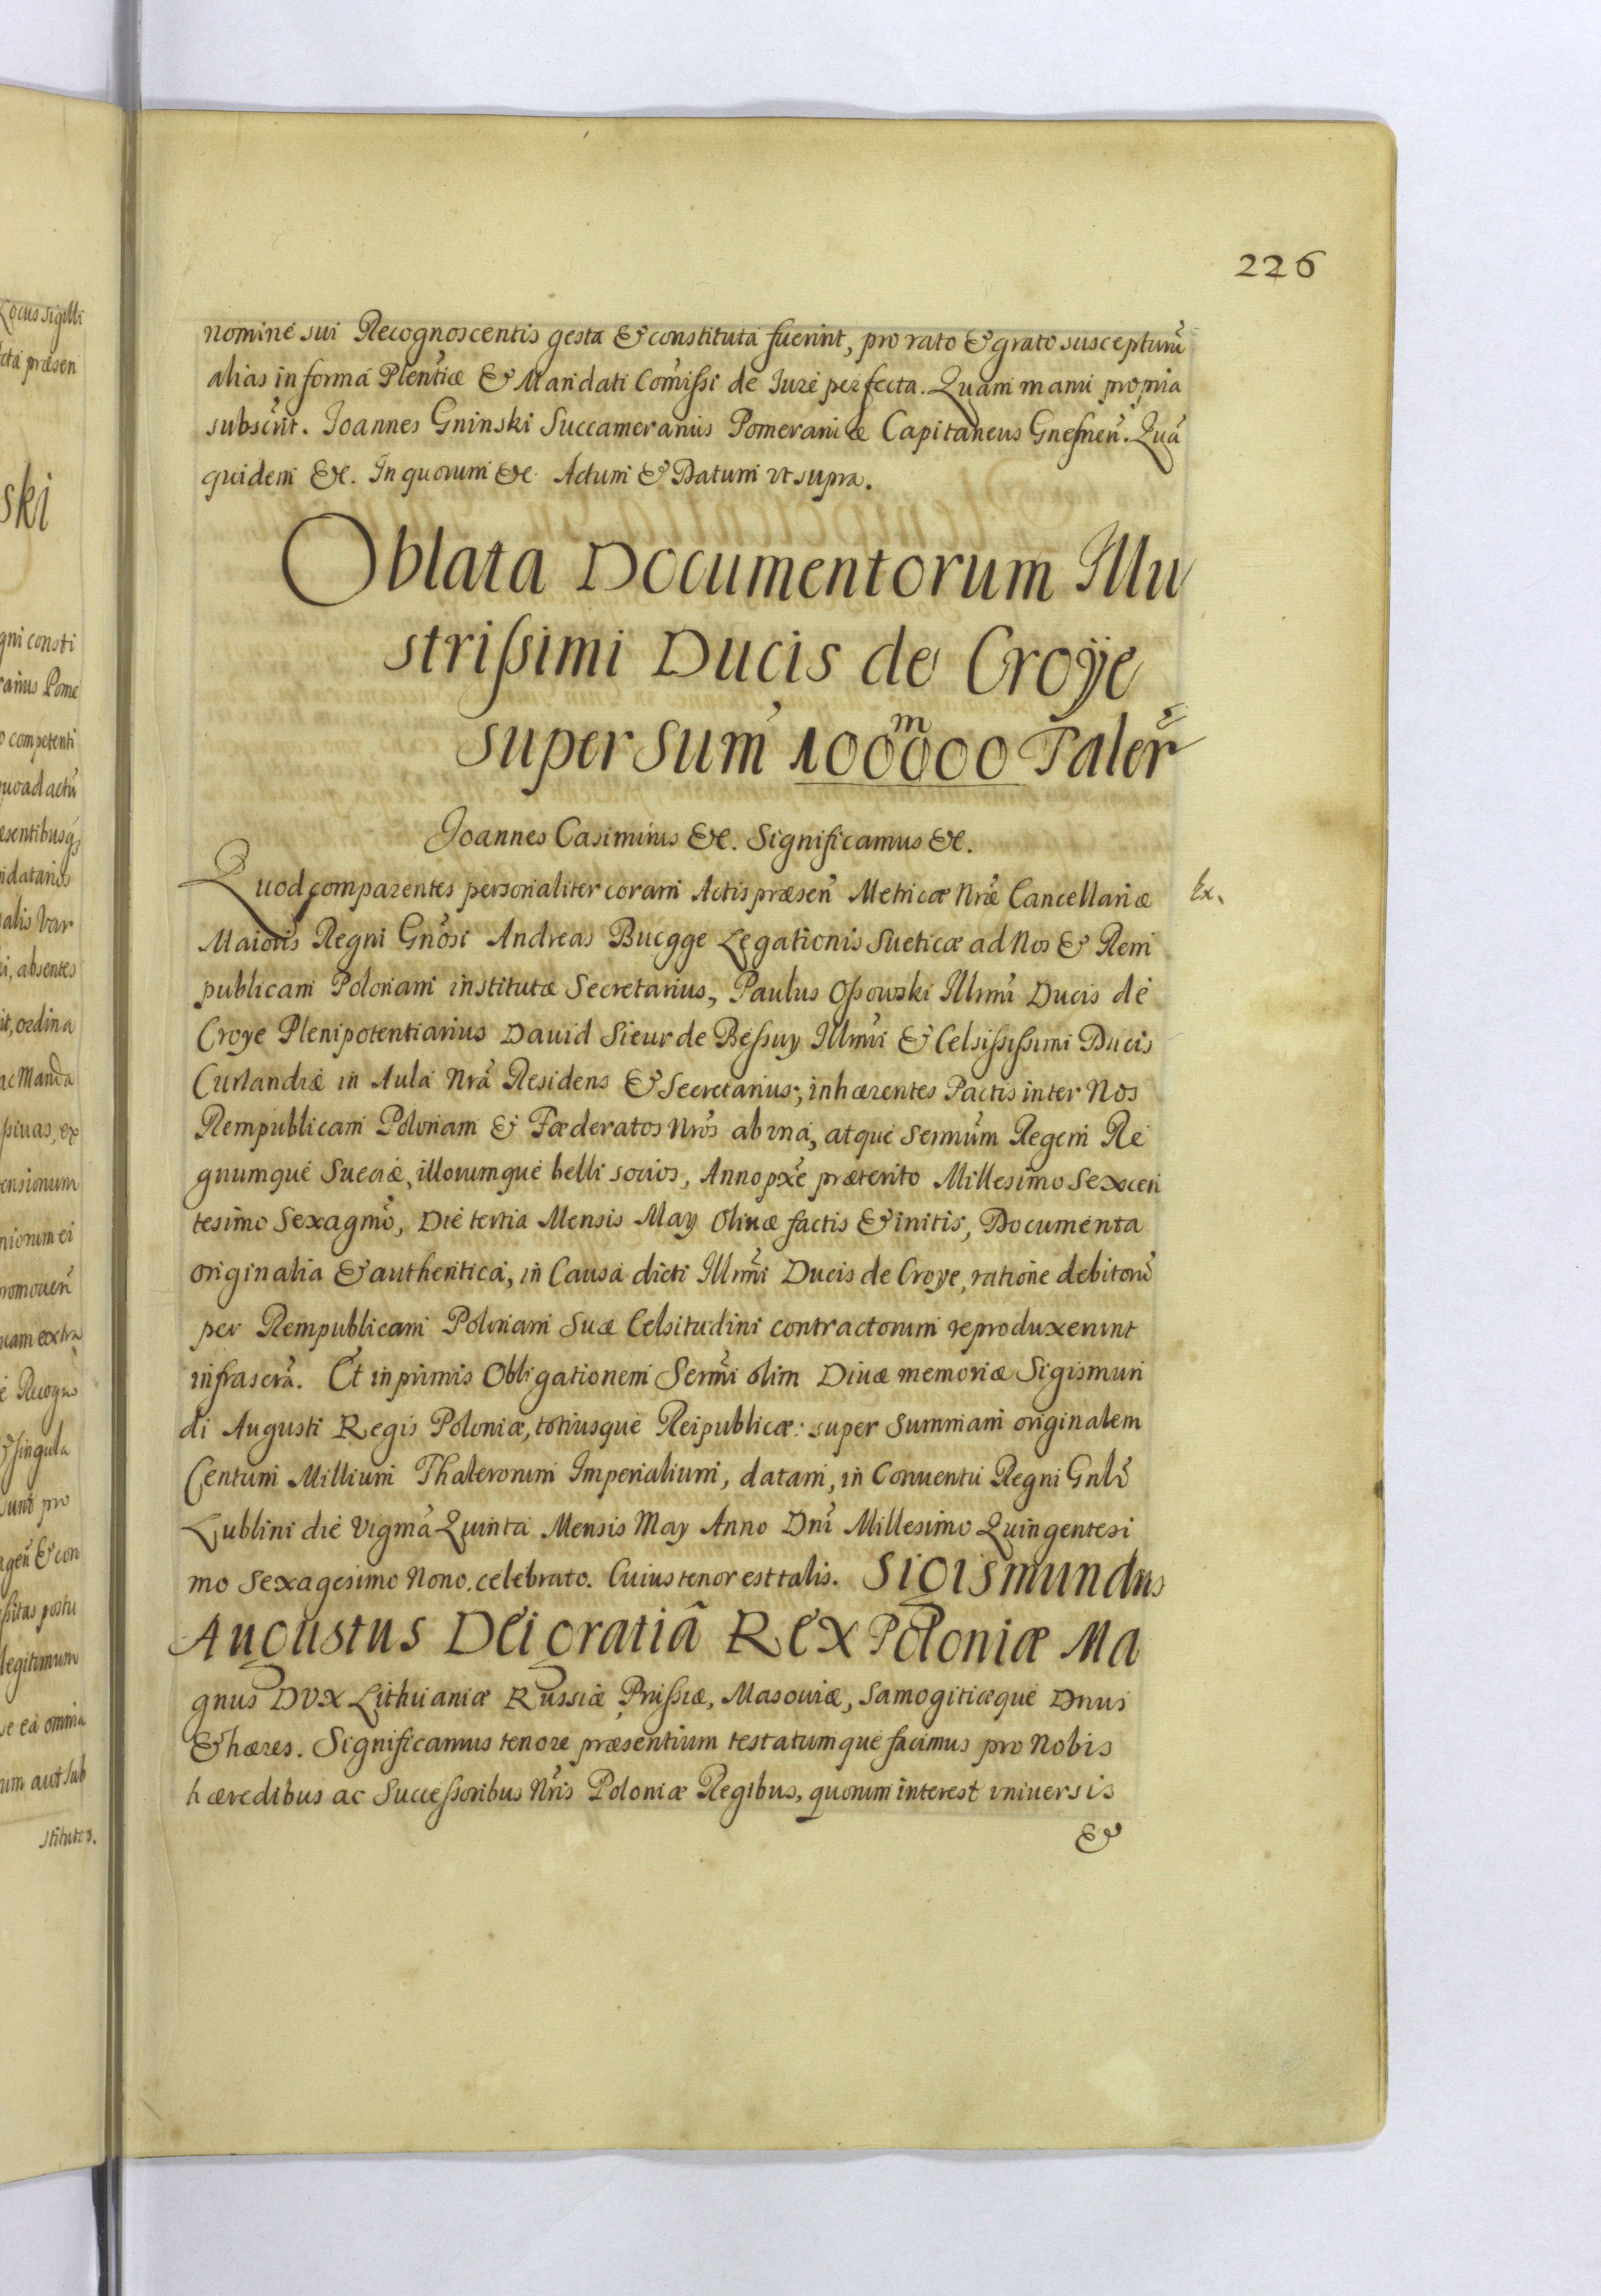 226
nomine sui Recognoscentis gesta & constituta fuerint, pro rato & grato suscepturũ
alias in forma Plentiæ & Mandati Comissi de Iure perfecta. Quam manu propria
subscrit. Joannes Gninski Succamerarius Pomeraniæ Capitaneus Gnesnen. Quã
quidem &c. In quorum &c. Actum & Datum vt supra.
Oblata Documentorum Illu
strissimi Ducis de Croÿe
super Sum 100000 m Taler
Joannes Casimirus &c. Significamus &c.
Quod comparentes personaliter coram Actis præsen Metricæ Nræ Cancellariæ
Ex.
Maioris Regni Gnosi Andreas Bucgge Legationis Sueticæ ad Nos & Rem
publicam Poloniam institutæ Secretarius, Paulus Ossowski Illmi Ducis de
Croye Plenipotentiarius Dauid Sieur de Bessuy Illmi & Celsissimi Ducis
Curlandiæ in Aula Nrã Residens & Secretarius; inhærentes Pactis inter Nos
Rempublicam Poloniam & Fæderatos Nros ab vna, atque Sermum Regem Re
gnumque Sueciæ, illorumque belli socios, Anno pxe præterito Millesimo Sexcen
tesimo Sexagmo, Die tertia Mensis May Oliuæ factis & initis, Documenta
originalia & authentica, in Causa dicti Illmi Ducis de Croye, ratione debitorũ
per Rempublicam Poloniam Suæ Celsitudini contractorum reproduxerunt
infrascra. Et in primis Obligationem Sermi olim Diuæ memoriæ Sigismun
di Augusti Regis Poloniæ, totiusque Reipublicæ: super Summam originalem
Centum Millium Thalerorum Imperialium, datam, in Conuentu Regni Gnli
Lublini die vigmã Quinta Mensis May Anno Dni Millesimo Quingentesi
mo Sexagesimo Nono. celebrato. Cuius tenor est talis. Sigismundus
Augustus Dei gratiâ Rex Poloniæ Ma
gnus Dux Lithuaniæ Russiæ Prussiæ, Masouiæ, Samogitiæque Dnus
& hæres. Significamus tenore præsentium testatumque facimus pro Nobis
hæredibus ac Successoribus Nris Poloniæ Regibus, quorum interest vniuersis
&